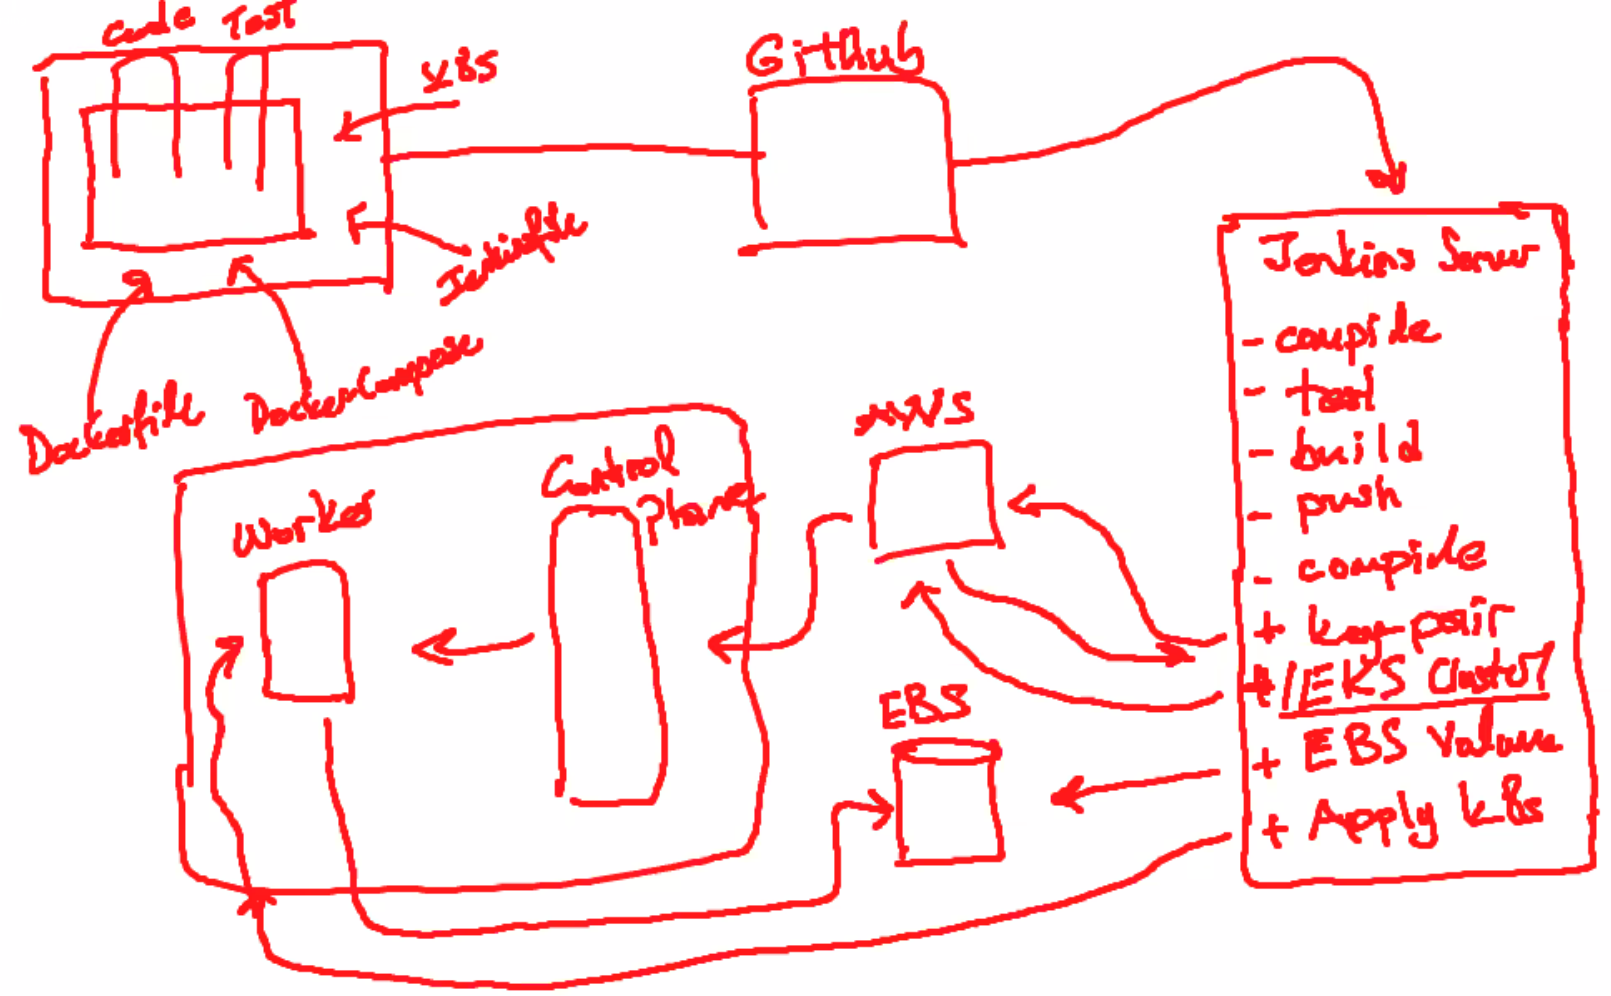 Code Test
K8S
Github
Jenkinsfile
Dockerfile
Docker-Compose
Jenkins Server
- compile
- test
- build
- push
- compile
+ key-pair
+ EKS Cluster
+ EBS Volume
+ Apply k8s
AWS
Control
Plane
Worker
EBS